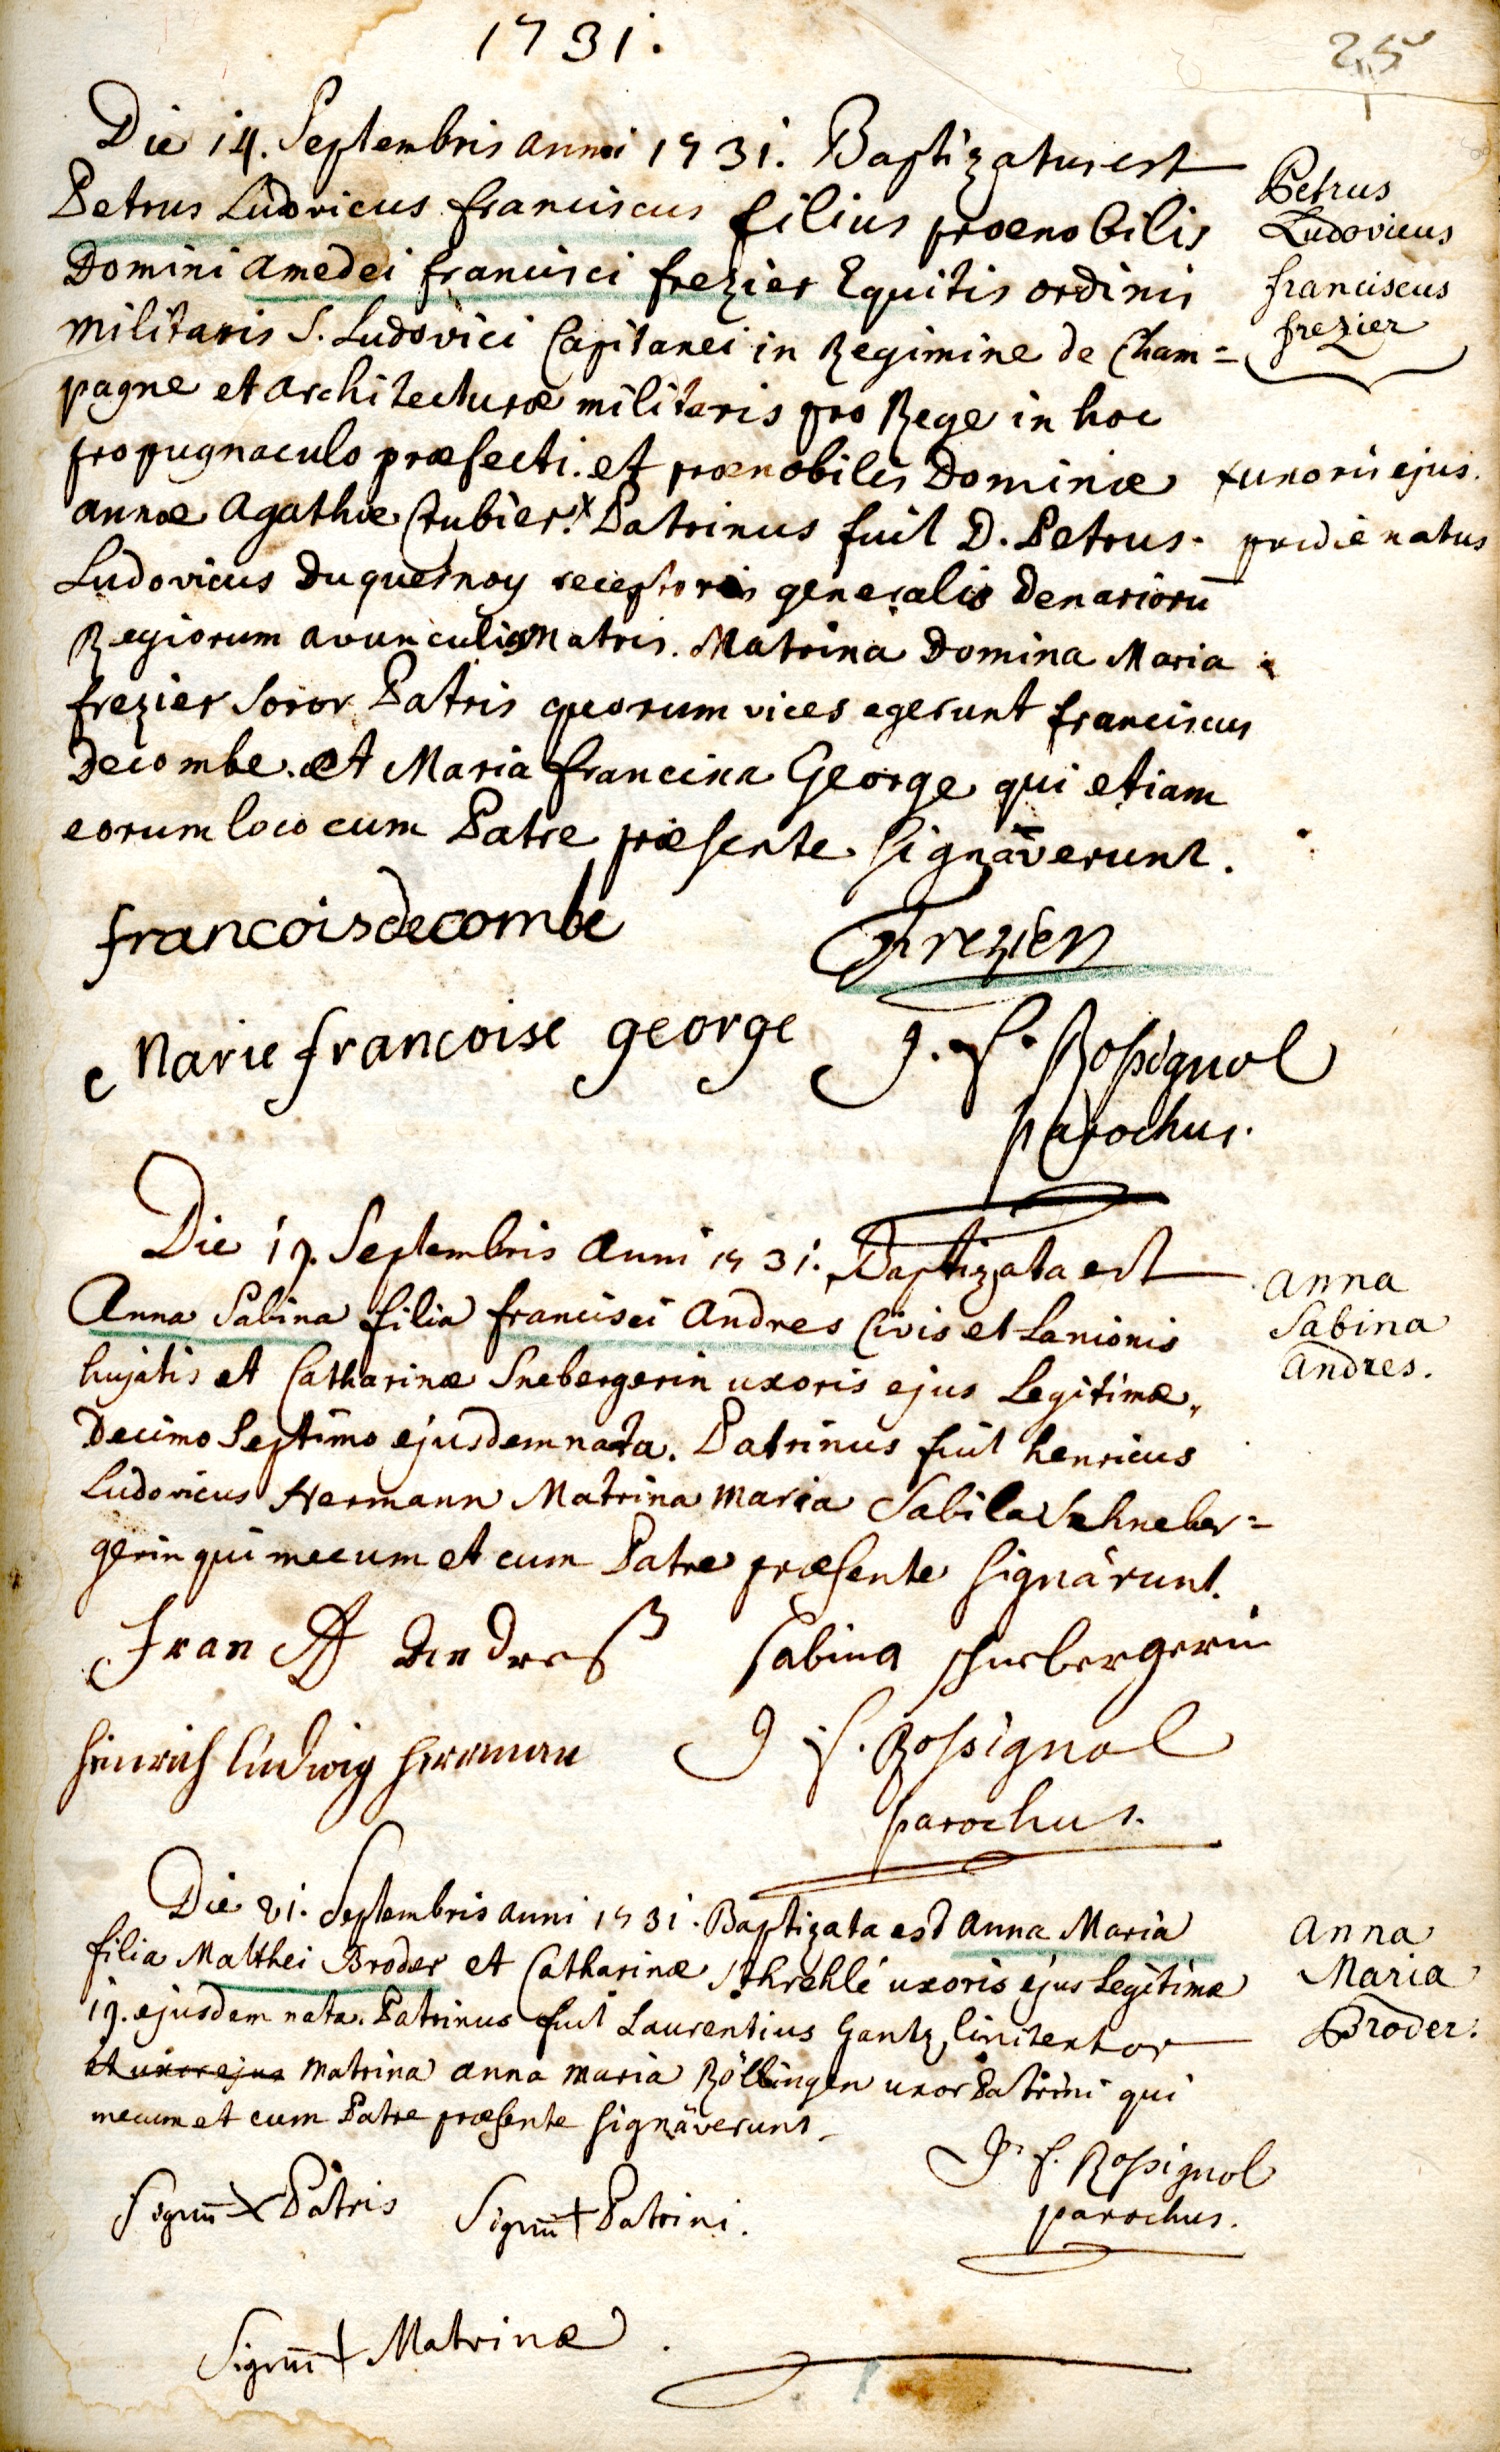 1731.
25
Die 14. Septembris anni 1731. Baptizatus est
Petrus Ludovicus franciscus filius prœnobilis
Domini Amedei francisci frezier Equitis ordinis
militaris S. Ludovici Capitanei in Regimine de Cham=
pagne et architecturæ militaris pro Rege in hoc
propugnaculo præfecti. et prænobilis Dominæ
annæ Agathæ Crubier.x Patrinus fuit D. Petrus
Ludovicus Duquesnoy receptor generalis Denarioru̅
Regiorum avunculus Matris. Matrina Domina Maria
frezier soror Patris quorum vices egerunt franciscus
Decombe. et Maria francina George qui etiam
eorum loco cum Patre præsente signaverunt.
Petrus
Ludovicus
franciscus
frezier
x uxoris ejus.
pridie natus
francoisdecombe
Frezier
Marie francoise george
J. f. Rossignol
parochus.
Die 19. Septembris Anni 1731. Baptizata est
Anna Sabina filia francisci Andres Civis et Lanionis
hujatis et Catharinæ Snebergerin uxoris ejus Legitimæ,
Decimo Septimo ejusdem nata. Patrinus fuit henricus
Ludovicus Hermann Matrina Maria Sabila Schneber=
gerin qui mecum et cum Patre præsente signârunt.
anna
Sabina
andres.
Fran Andreß
Sabina schnebergerin
Heinrich Ludwig Herrman
J f. Rossignol
parochus.
Die 21. Septembris anni 1731. Baptizata est anna Maria
filia Matthei Broder et Catharinæ Schrehlé uxoris ejus Legitimæ
19. ejusdem nata. Patrinus fuit Laurentius Gantz linitextor
et uxor ejus Matrina anna maria Röllingen uxor Patrini qui
mecum et cum Patre præsente signaverunt.
anna
Maria
Broder.
J. f. Rossignol
parochus.
Signu̅ x Patris Signu̅ + Patrini.
Signu̅ + Matrinæ.